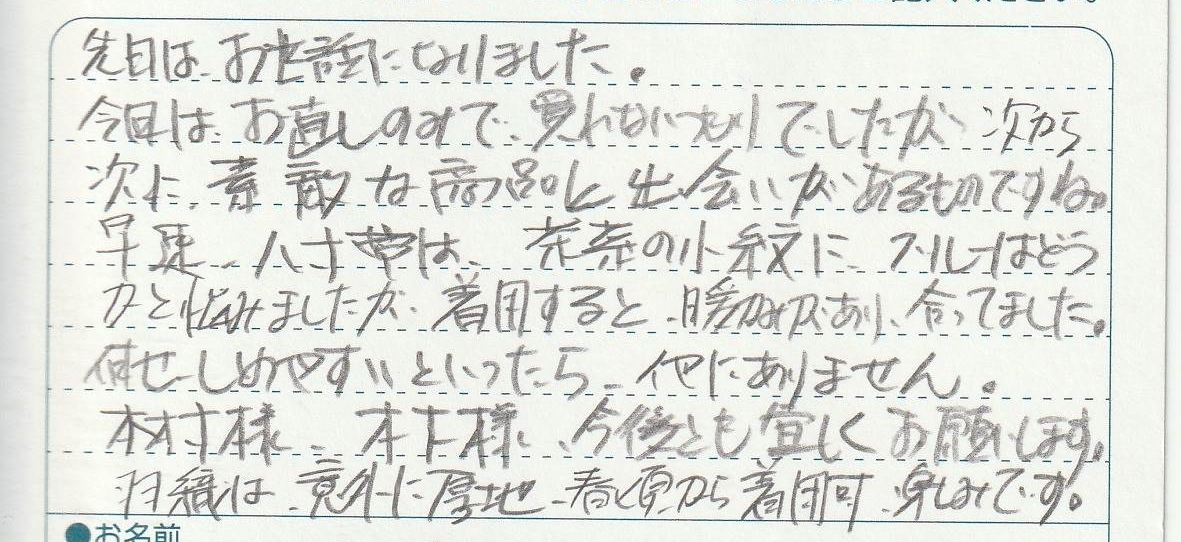 先日は、お世話になりました。
今日は、お直しのみで、買わないつもりでしたが 次から
次に、素敵な商品と出会いがあるものですね。
早速、八寸帯は、茶系の小紋に、ブルーはどう
かと悩みましたが、着用すると、暖かみがあり、合ってました。
何せ、しめやすいといったら、他にありません。
木村様、木下様、今後とも宜しくお願いします。
羽織は、意外に厚地、春頃から着用可、楽しみです。
●お名前